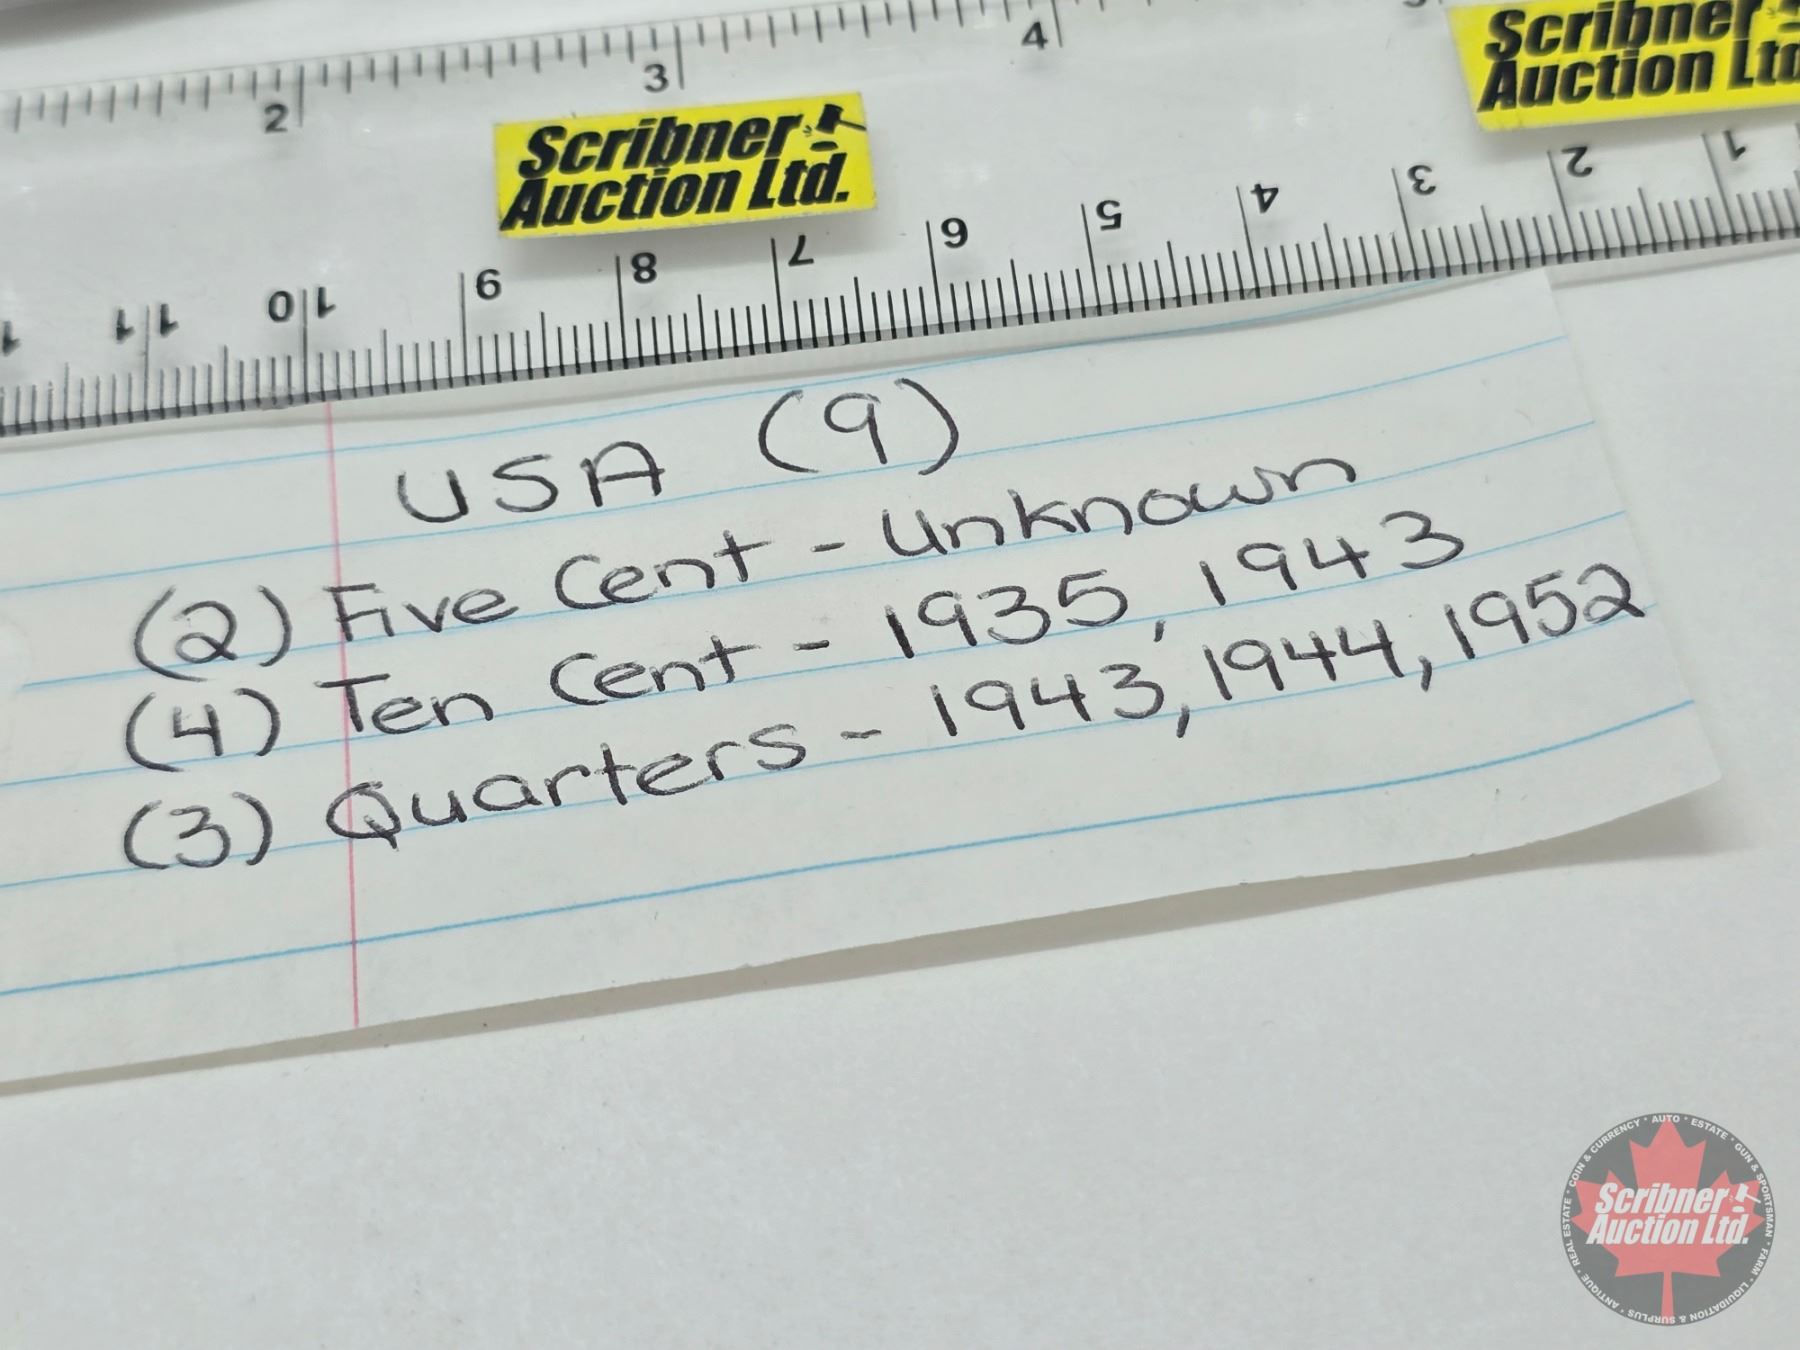 2 3 4
Scribner
Auction Ltd.
Scribner
Auction Ltd
11 10 9 8 7 6 5 4 3 2 1
USA (9)
(2) Five Cent - Unknown
(4) Ten Cent - 1935, 1943
(3) Quarters - 1943, 1944, 1952
COIN & CURRENCY • AUTO • ESTATE • GUN & SPORTSMAN • FARM • LIQUIDATION & SURPLUS • ANTIQUE • REAL ESTATE •
Scribner
Auction Ltd.